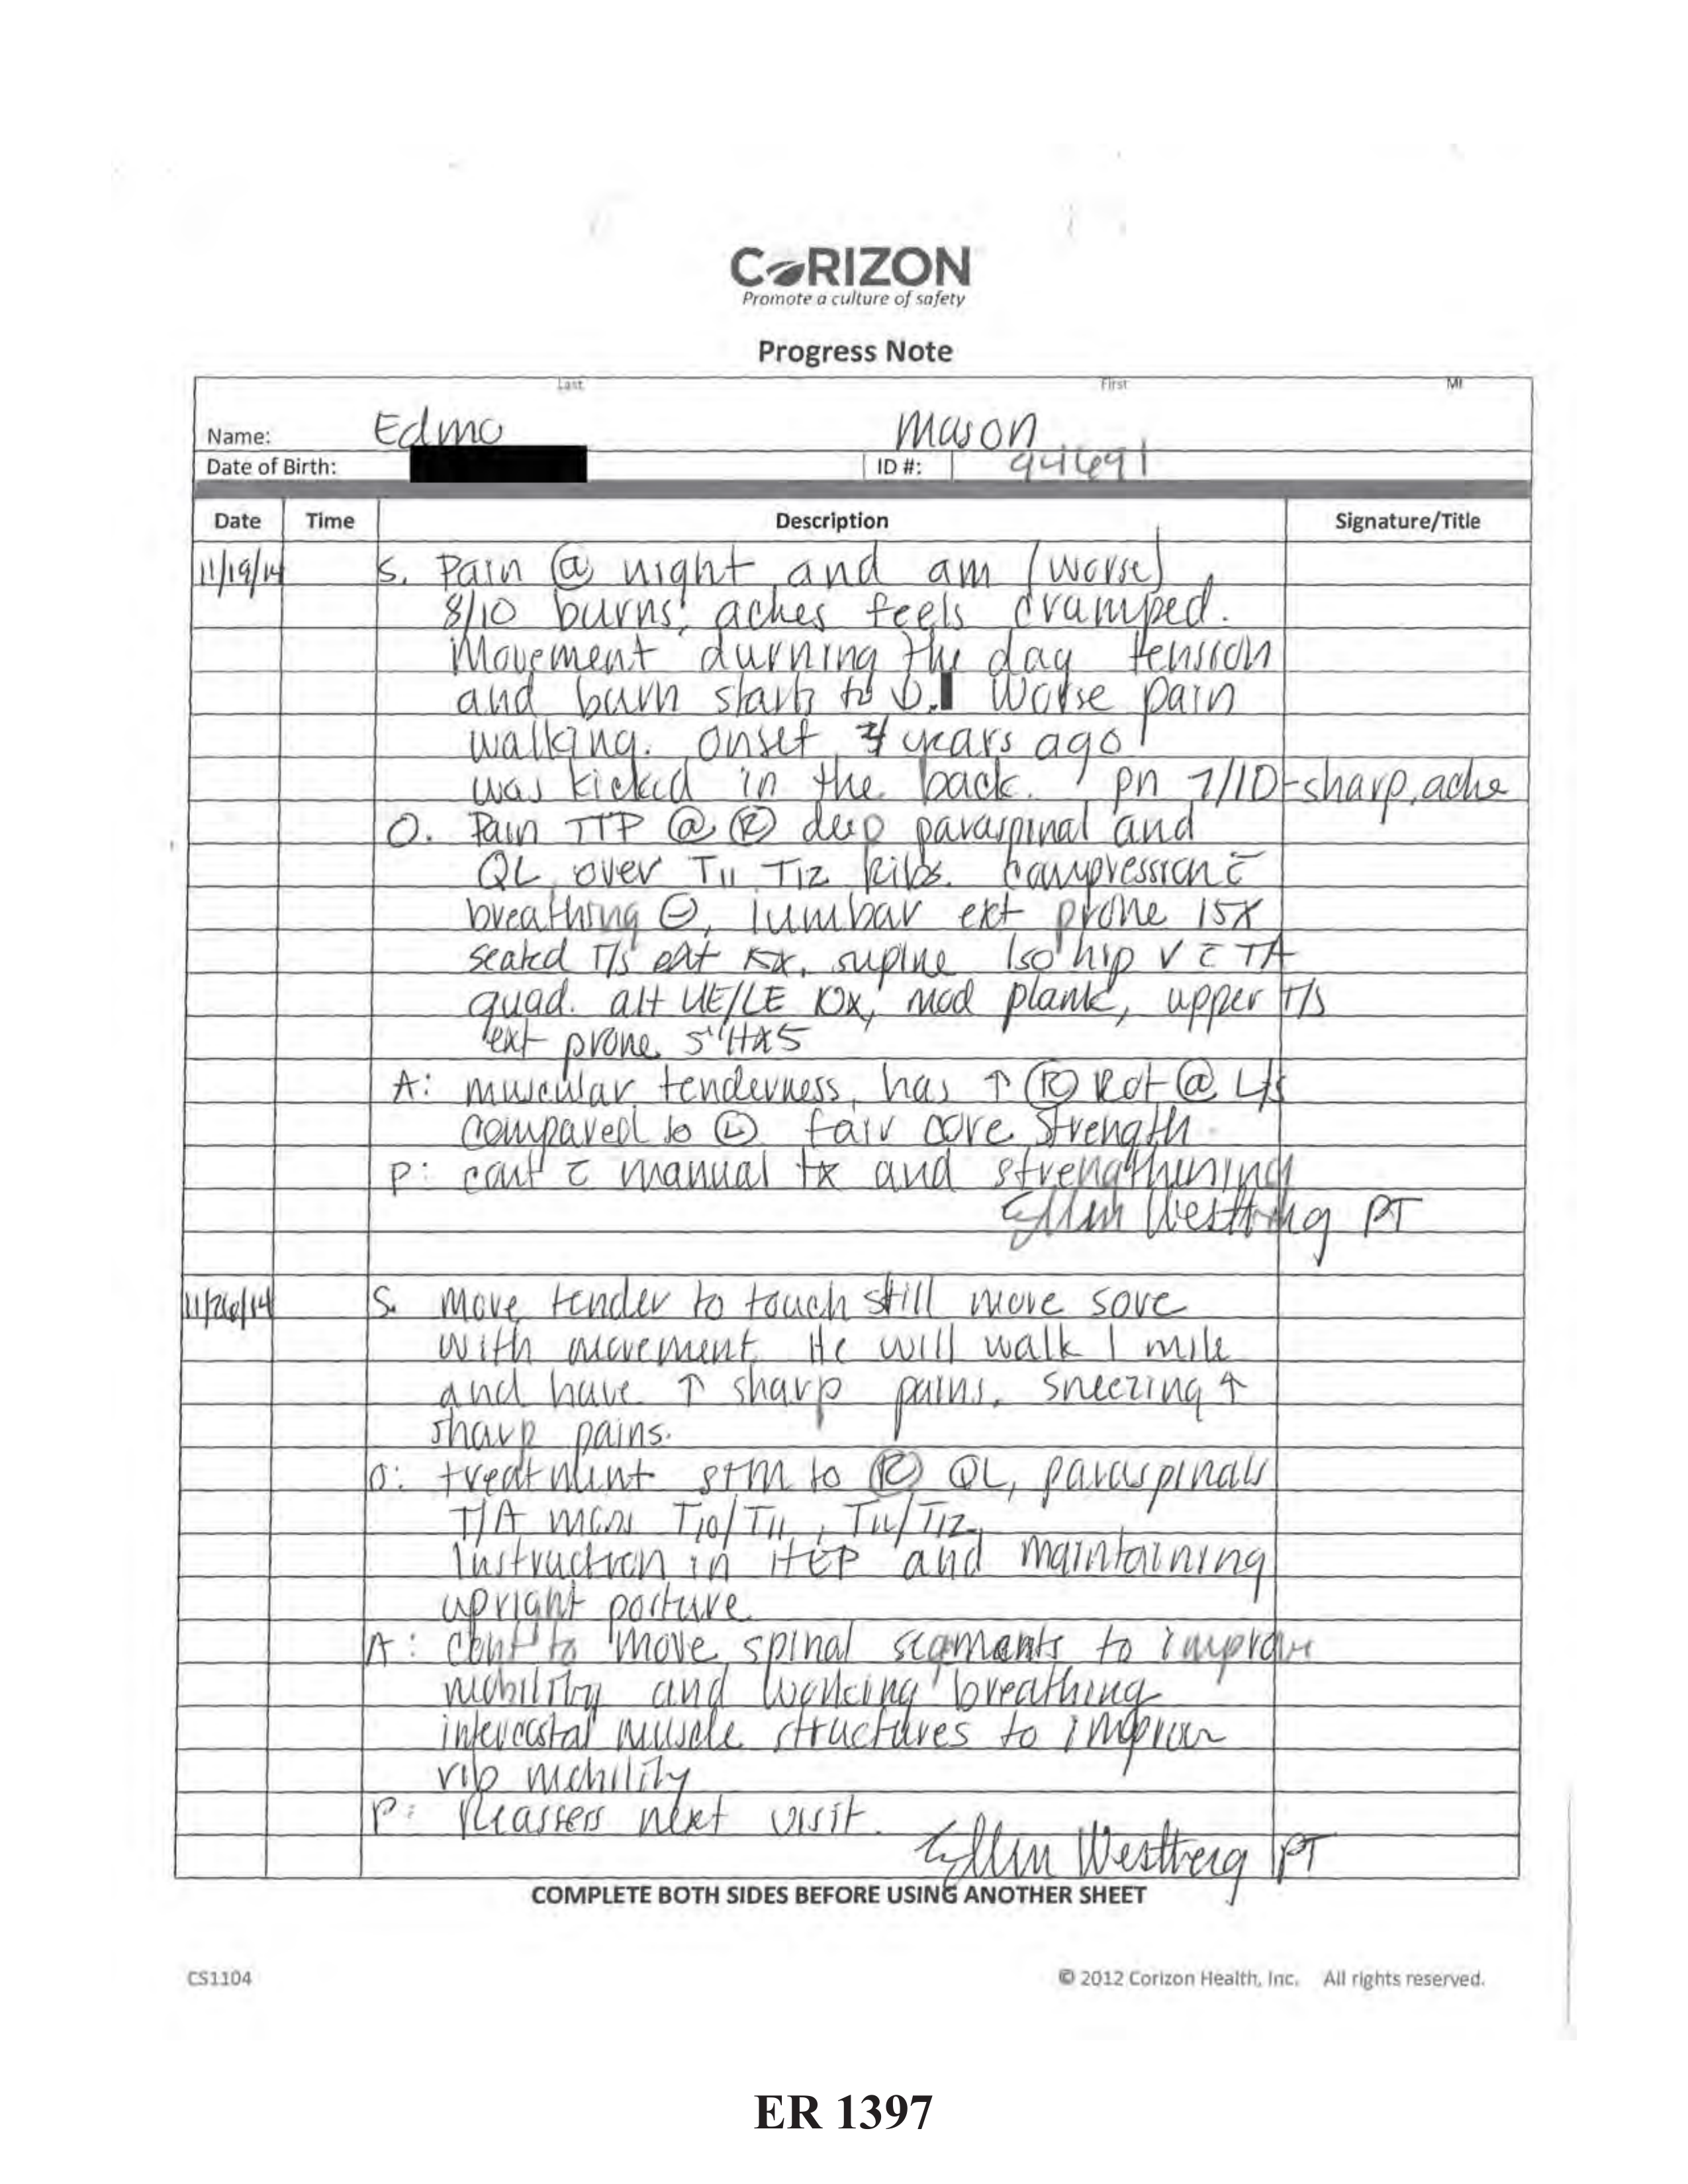 CORIZON
Promote a culture of safety
Progress Note
Last First MI
Name: Edmo Mason
Date of Birth: ID #: 94691
Date Time Description Signature/Title
11/19/14 S. Pain @ night and am (worse)
8/10 burns, aches feels cramped.
Movement durning the day tension
and burn starts to ↓. Worse pain
walking. Onset 4 years ago
was kicked in the back. pn 7/10 - sharp, ache
O. Pain TTP @ Ⓡ deep paraspinal and
QL over T11 T12 Ribs. Compression c̄
breathing ⊖, lumbar ext prone 15x
seated T/S ext 15x, supine Iso hip v c̄ TA
quad. alt UE/LE 10x, mod plank, upper T/S
ext prone 5"Hx5
A: muscular tenderness, has ↑ Ⓡ Rot @ L/S
compared to Ⓛ fair core strength
P: cont c̄ manual tx and strengthening
Westberg PT
11/26/14 S. more tender to touch still more sore
with movement. He will walk 1 mile
and have ↑ sharp pains. Sneezing ↑
sharp pains.
O: treatment STM to Ⓡ QL, paraspinals
T/A T10/T11, T11/T12
Instruction in HEP and maintaining
upright posture
A: cont to move spinal segments to improve
mobility and working breathing
intercostal muscle structures to improve
rib mobility
P: Reassess next visit.
Westberg PT
COMPLETE BOTH SIDES BEFORE USING ANOTHER SHEET
CS1104 © 2012 Corizon Health, Inc. All rights reserved.
ER 1397